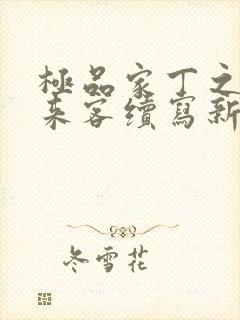 極品家丁之
來客續寫新
冬雪花